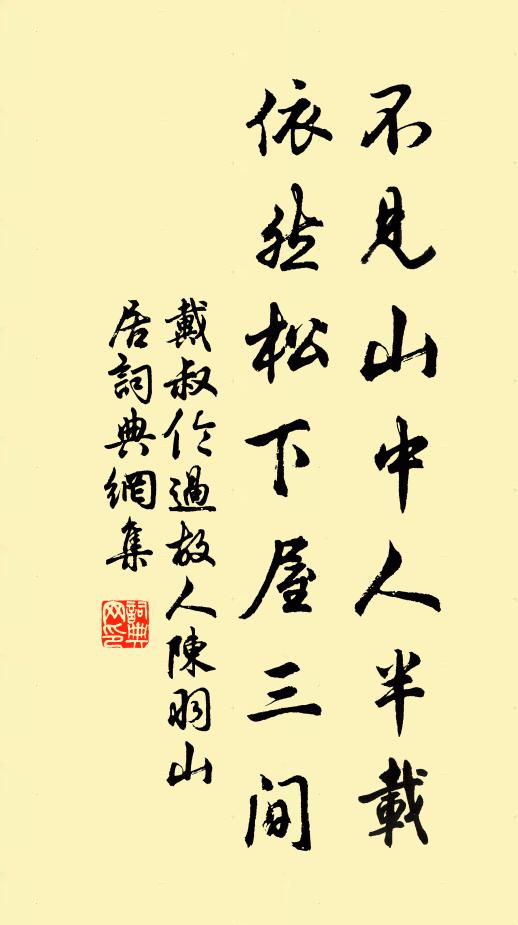 不見山中人半載
依然松下屋三間
戴叔伦過故人陳羽山
居詞典網集
詞典网印